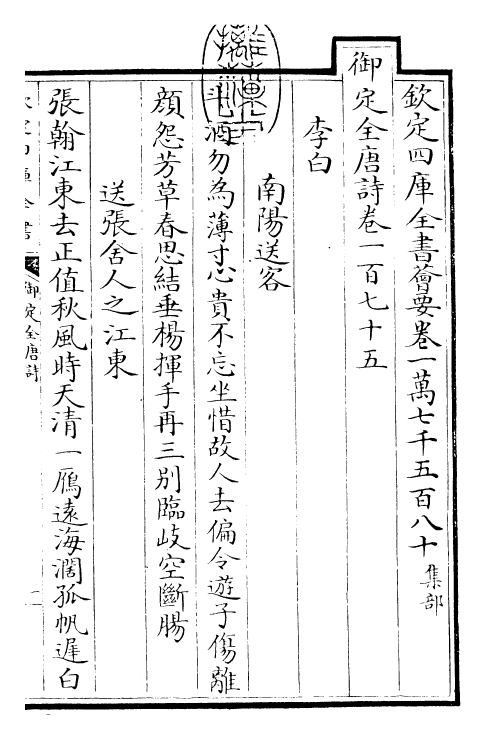 欽定四庫全書薈要卷一萬七千五百八十集部
御定全唐詩卷一百七十五
李白
南陽送客
斗酒勿為薄寸心貴不忘坐惜故人去偏令遊子傷離
顔怨芳草春思結垂楊揮手再三别臨岐空斷腸
送張舍人之江東
張翰江東去正值秋風時天清一鴈遠海濶孤帆遲白
御定全唐詩